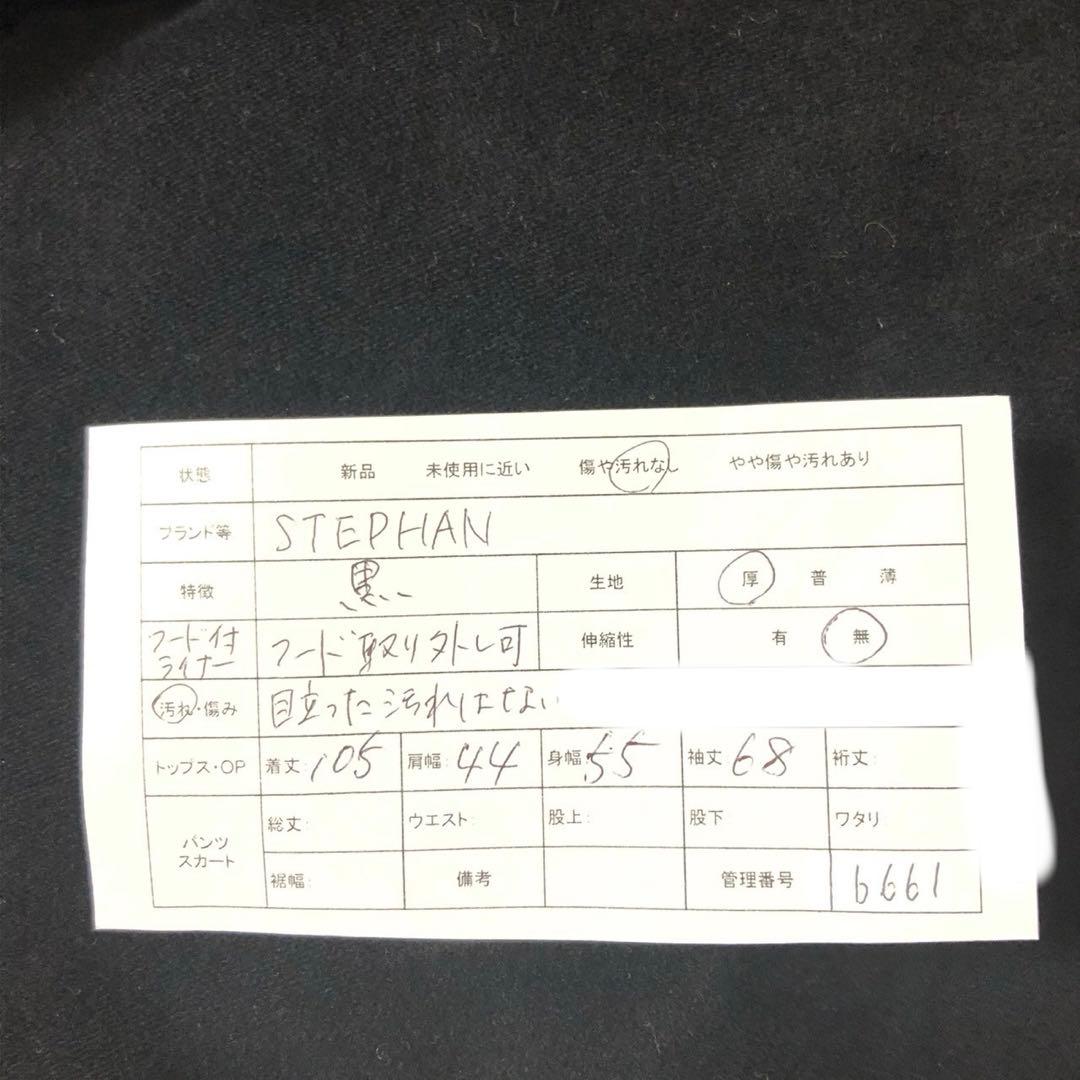 状態 新品 未使用に近い 傷や汚れなし やや傷や汚れあり
ブランド等 STEPHAN
特徴 黒 生地 厚 普 薄
フード付 フード取り外し可 伸縮性 有 無
ライナー
汚れ・傷み 目立った汚れはない
トップス・OP 着丈: 105 肩幅: 44 身幅: 55 袖丈 68 裄丈:
パンツ 総丈: ウエスト: 股上: 股下 ワタリ
スカート
裾幅: 備考 管理番号 6661